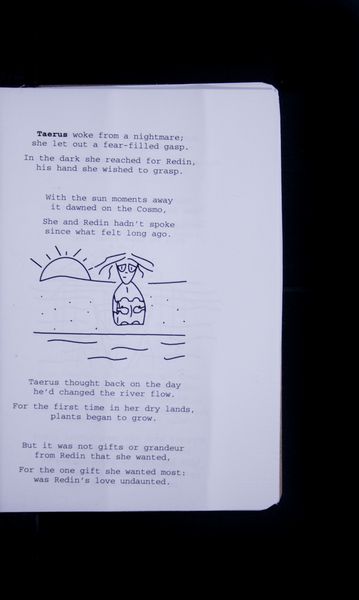 Taerus woke from a nightmare;
she let out a fear-filled gasp.
In the dark she reached for Redin,
his hand she wished to grasp.
With the sun moments away
it dawned on the Cosmo,
She and Redin hadn't spoke
since what felt long ago.
Taerus thought back on the day
he'd changed the river flow.
For the first time in her dry lands,
plants began to grow.
But it was not gifts or grandeur
from Redin that she wanted,
For the one gift she wanted most:
was Redin's love undaunted.